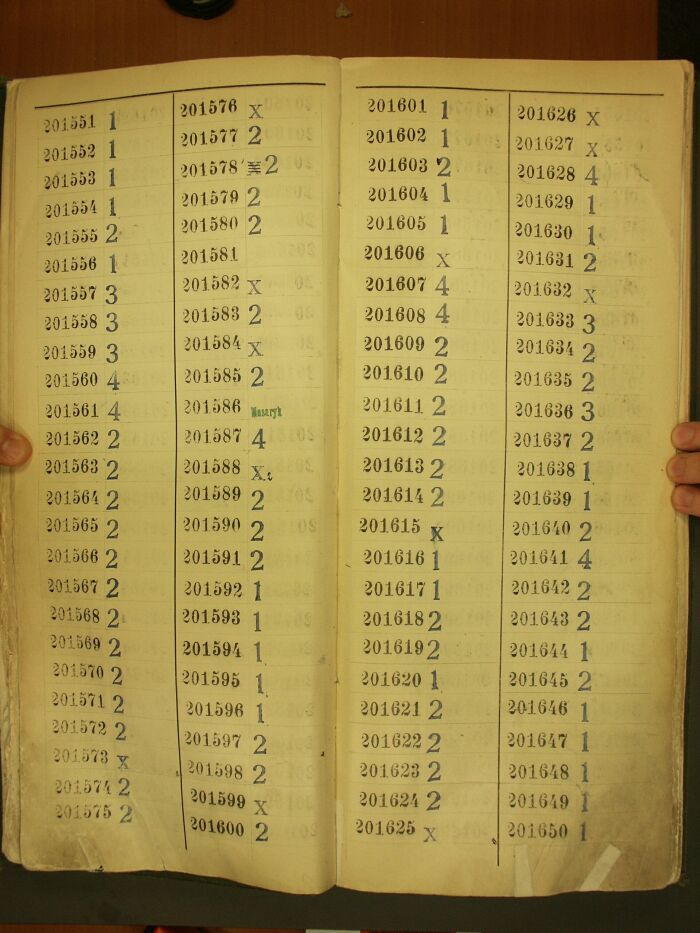 201551 1
201552 1
201553 1
201554 1
201555 2
201556 1
201557 3
201558 3
201559 3
201560 4
201561 4
201562 2
201563 2
201564 2
201565 2
201566 2
201567 2
201568 2
201569 2
201570 2
201571 2
201572 2
201573 x
201574 2
201575 2
201576 x
201577 2
201578 2
201579 2
201580 2
201581
201582 x
201583 2
201584 x
201585 2
201586 Masaryk
201587 4
201588 x
201589 2
201590 2
201591 2
201592 1
201593 1
201594 1
201595 1
201596 1
201597 2
201598 2
201599 x
201600 2
201601 1
201602 1
201603 2
201604 1
201605 1
201606 x
201607 4
201608 4
201609 2
201610 2
201611 2
201612 2
201613 2
201614 2
201615 x
201616 1
201617 1
201618 2
201619 2
201620 1
201621 2
201622 2
201623 2
201624 2
201625 x
201626 x
201627 x
201628 4
201629 1
201630 1
201631 2
201632 x
201633 3
201634 2
201635 2
201636 3
201637 2
201638 1
201639 1
201640 2
201641 4
201642 2
201643 2
201644 1
201645 2
201646 1
201647 1
201648 1
201649 1
201650 1